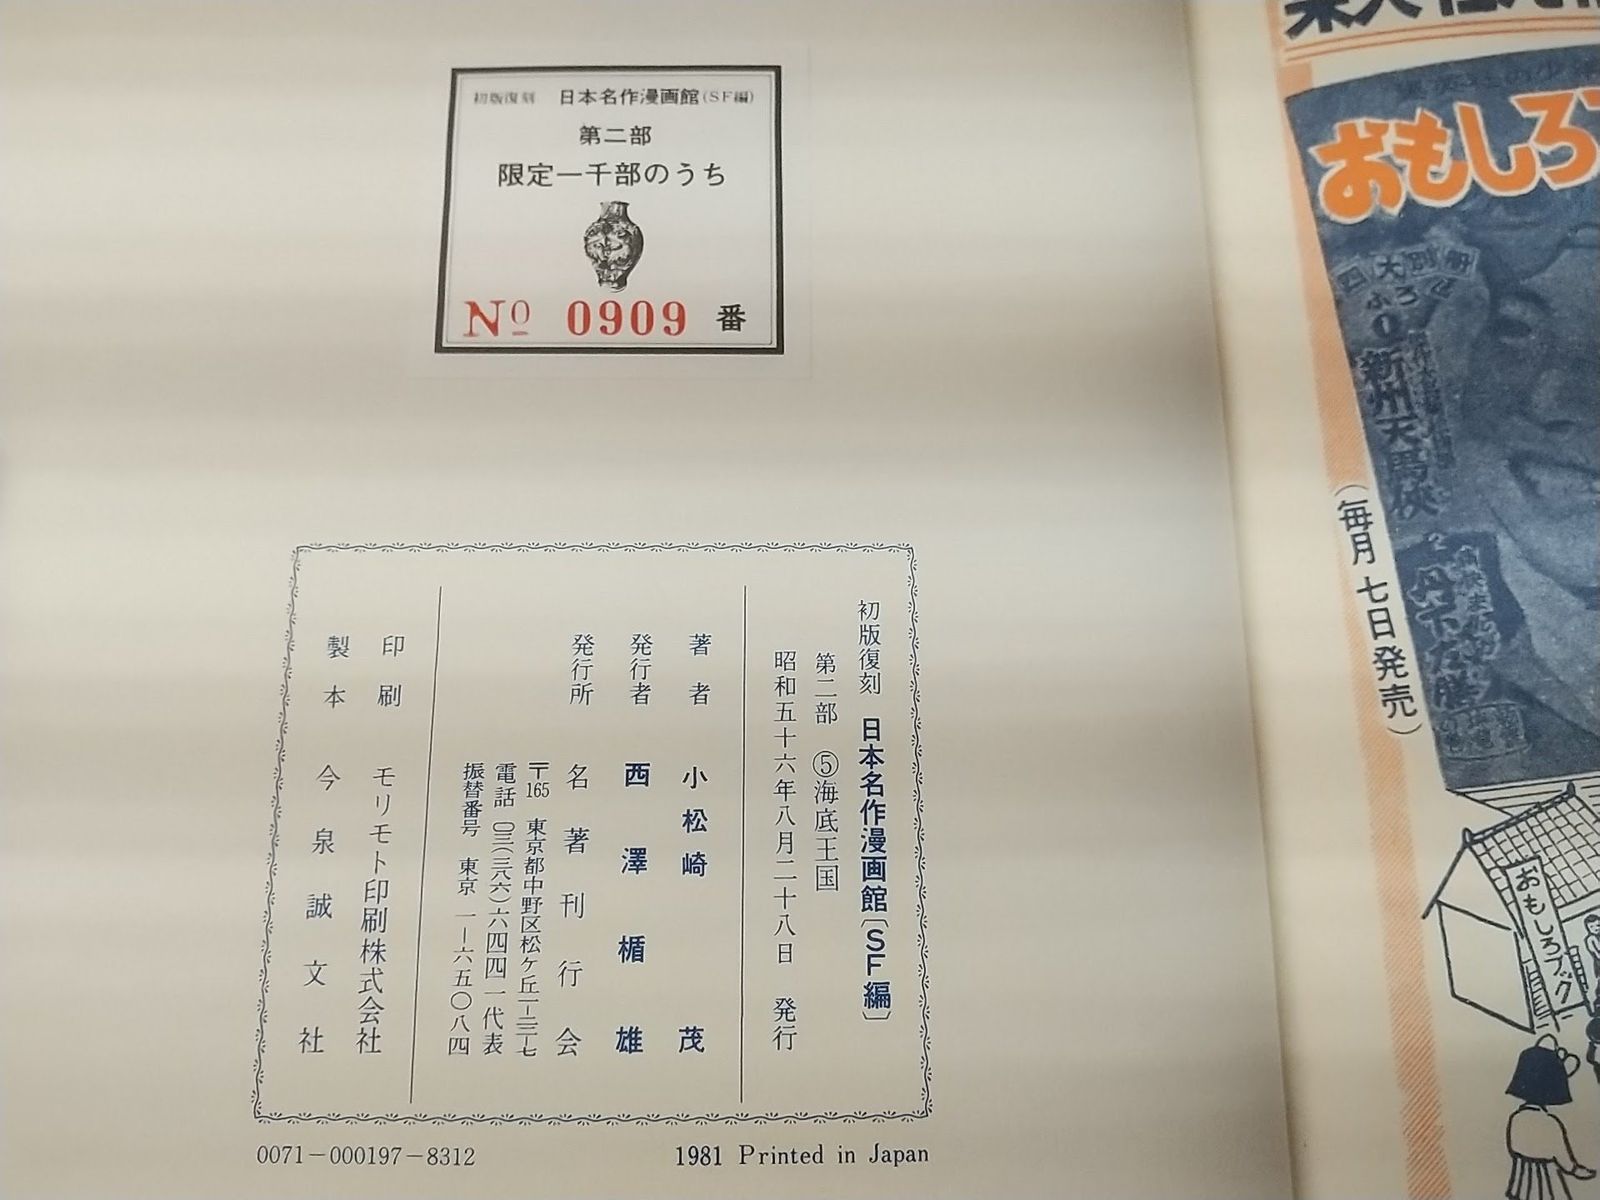 初版復刻 日本名作漫画館(SF編)
第二部
限定一千部のうち
No 0909 番
初版復刻 日本名作漫画館〔SF編〕
第二部 ⑤海底王国
昭和五十六年八月二十八日 発行
著者 小松崎 茂
発行者 西澤楯雄
発行所 名著刊行会
〒165 東京都中野区松ケ丘一−二三−七
電話 〇三(三八六)六四四一代表
振替番号 東京 一−六五〇八四
印刷 モリモト印刷株式会社
製本 今泉誠文社
0071−000197−8312
1981 Printed in Japan
おもしろ
四大別册
ふろく
新州天馬侠
(毎月七日発売)
おもしろブック